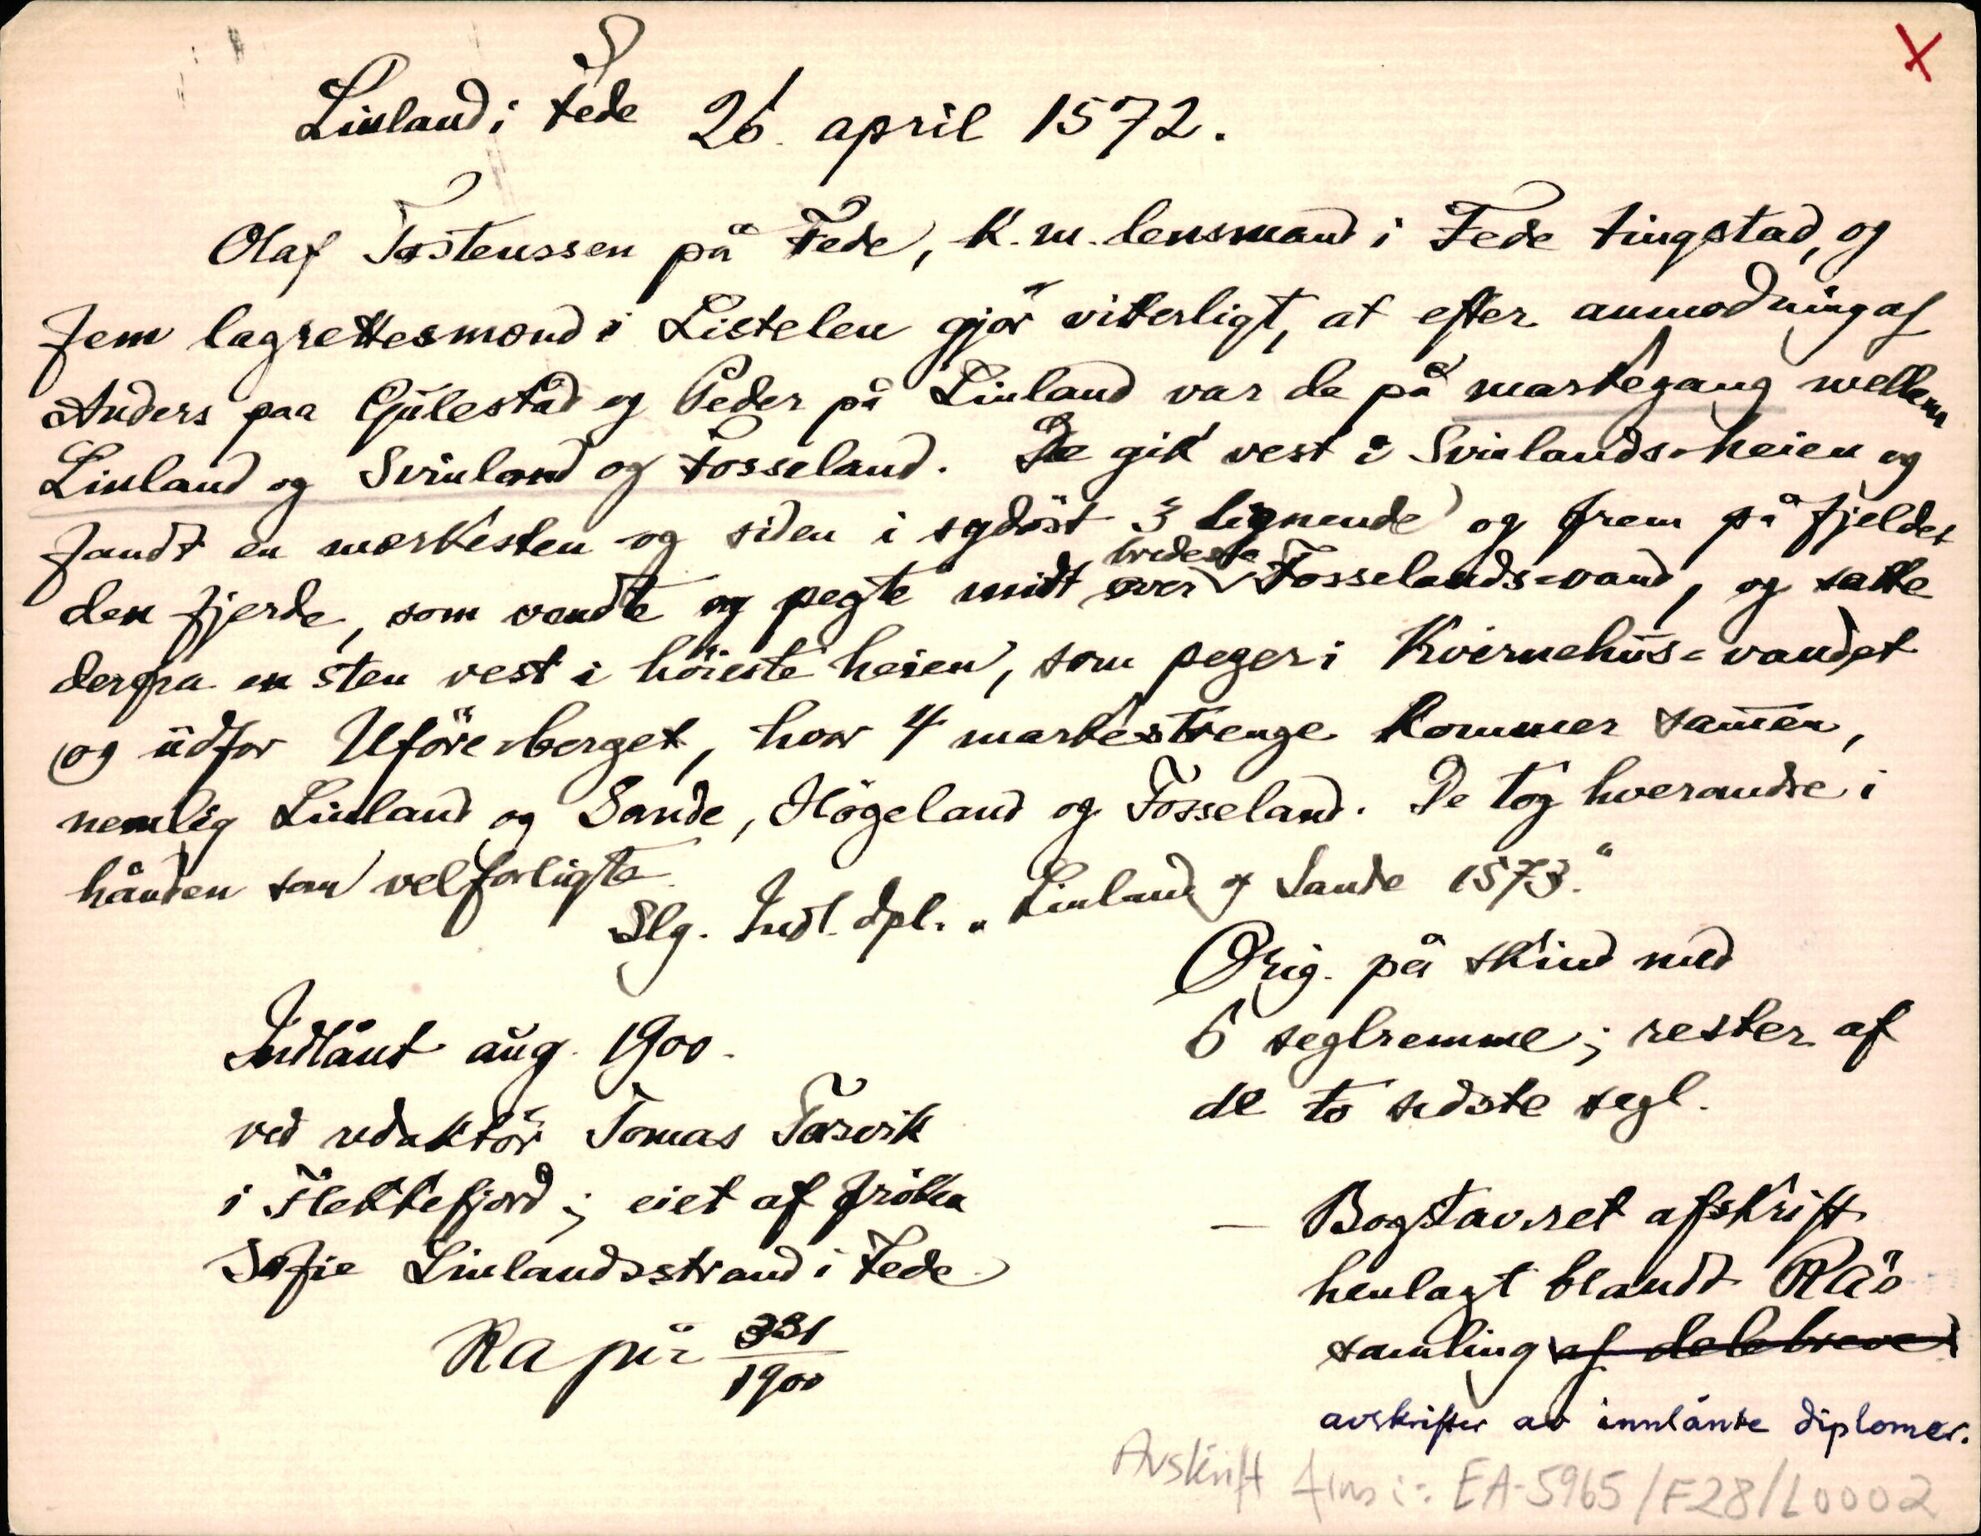 x
Linland i Fede 26. april 1572.
Olaf Tostenssen på Fede, K. m. lensmand i Fede tingstad, og
fem lagrettesmænd i Listelen gjör vitterligt, at efter anmodning af
Anders paa Gülestad og Peder på Linland var de på markegang mellem
Linland og Svinland og Fosseland. De gik vest i Svinlands-heien og
fandt en merkesten og siden i sydöst 3 lignende og frem på fjeldet
den fjerde, som vendte og pegte midt over bredeste Fosselands-vand, og satte
derfra en sten vest i höieste heien, som peger i Kvirnehus-vandet
og üdfor Uföre-berget, hvor 4 markestrenge kommer samen,
nemlig Linland og Sande, Högeland og Fosseland. De tog hverandre i
hånden som vel forligte.
Slg. Indl. dpl. „Linland og Sande 1573.“
Orig. på skind med
6 seglremme; rester af
de to sidste segl.
Indlånt aug. 1900.
ved redaktör Tomas Tarvik
i Flekkefjord; eiet af fröken
Sofie Linlandsstrand i Fede
RA pür 331/1900
— Bogstavret afskrift
henlagt blandt RA's
samling af delebreve
avskrifter av innlånte diplomer.
Avskrift fins i: EA-5965/F28/L0002